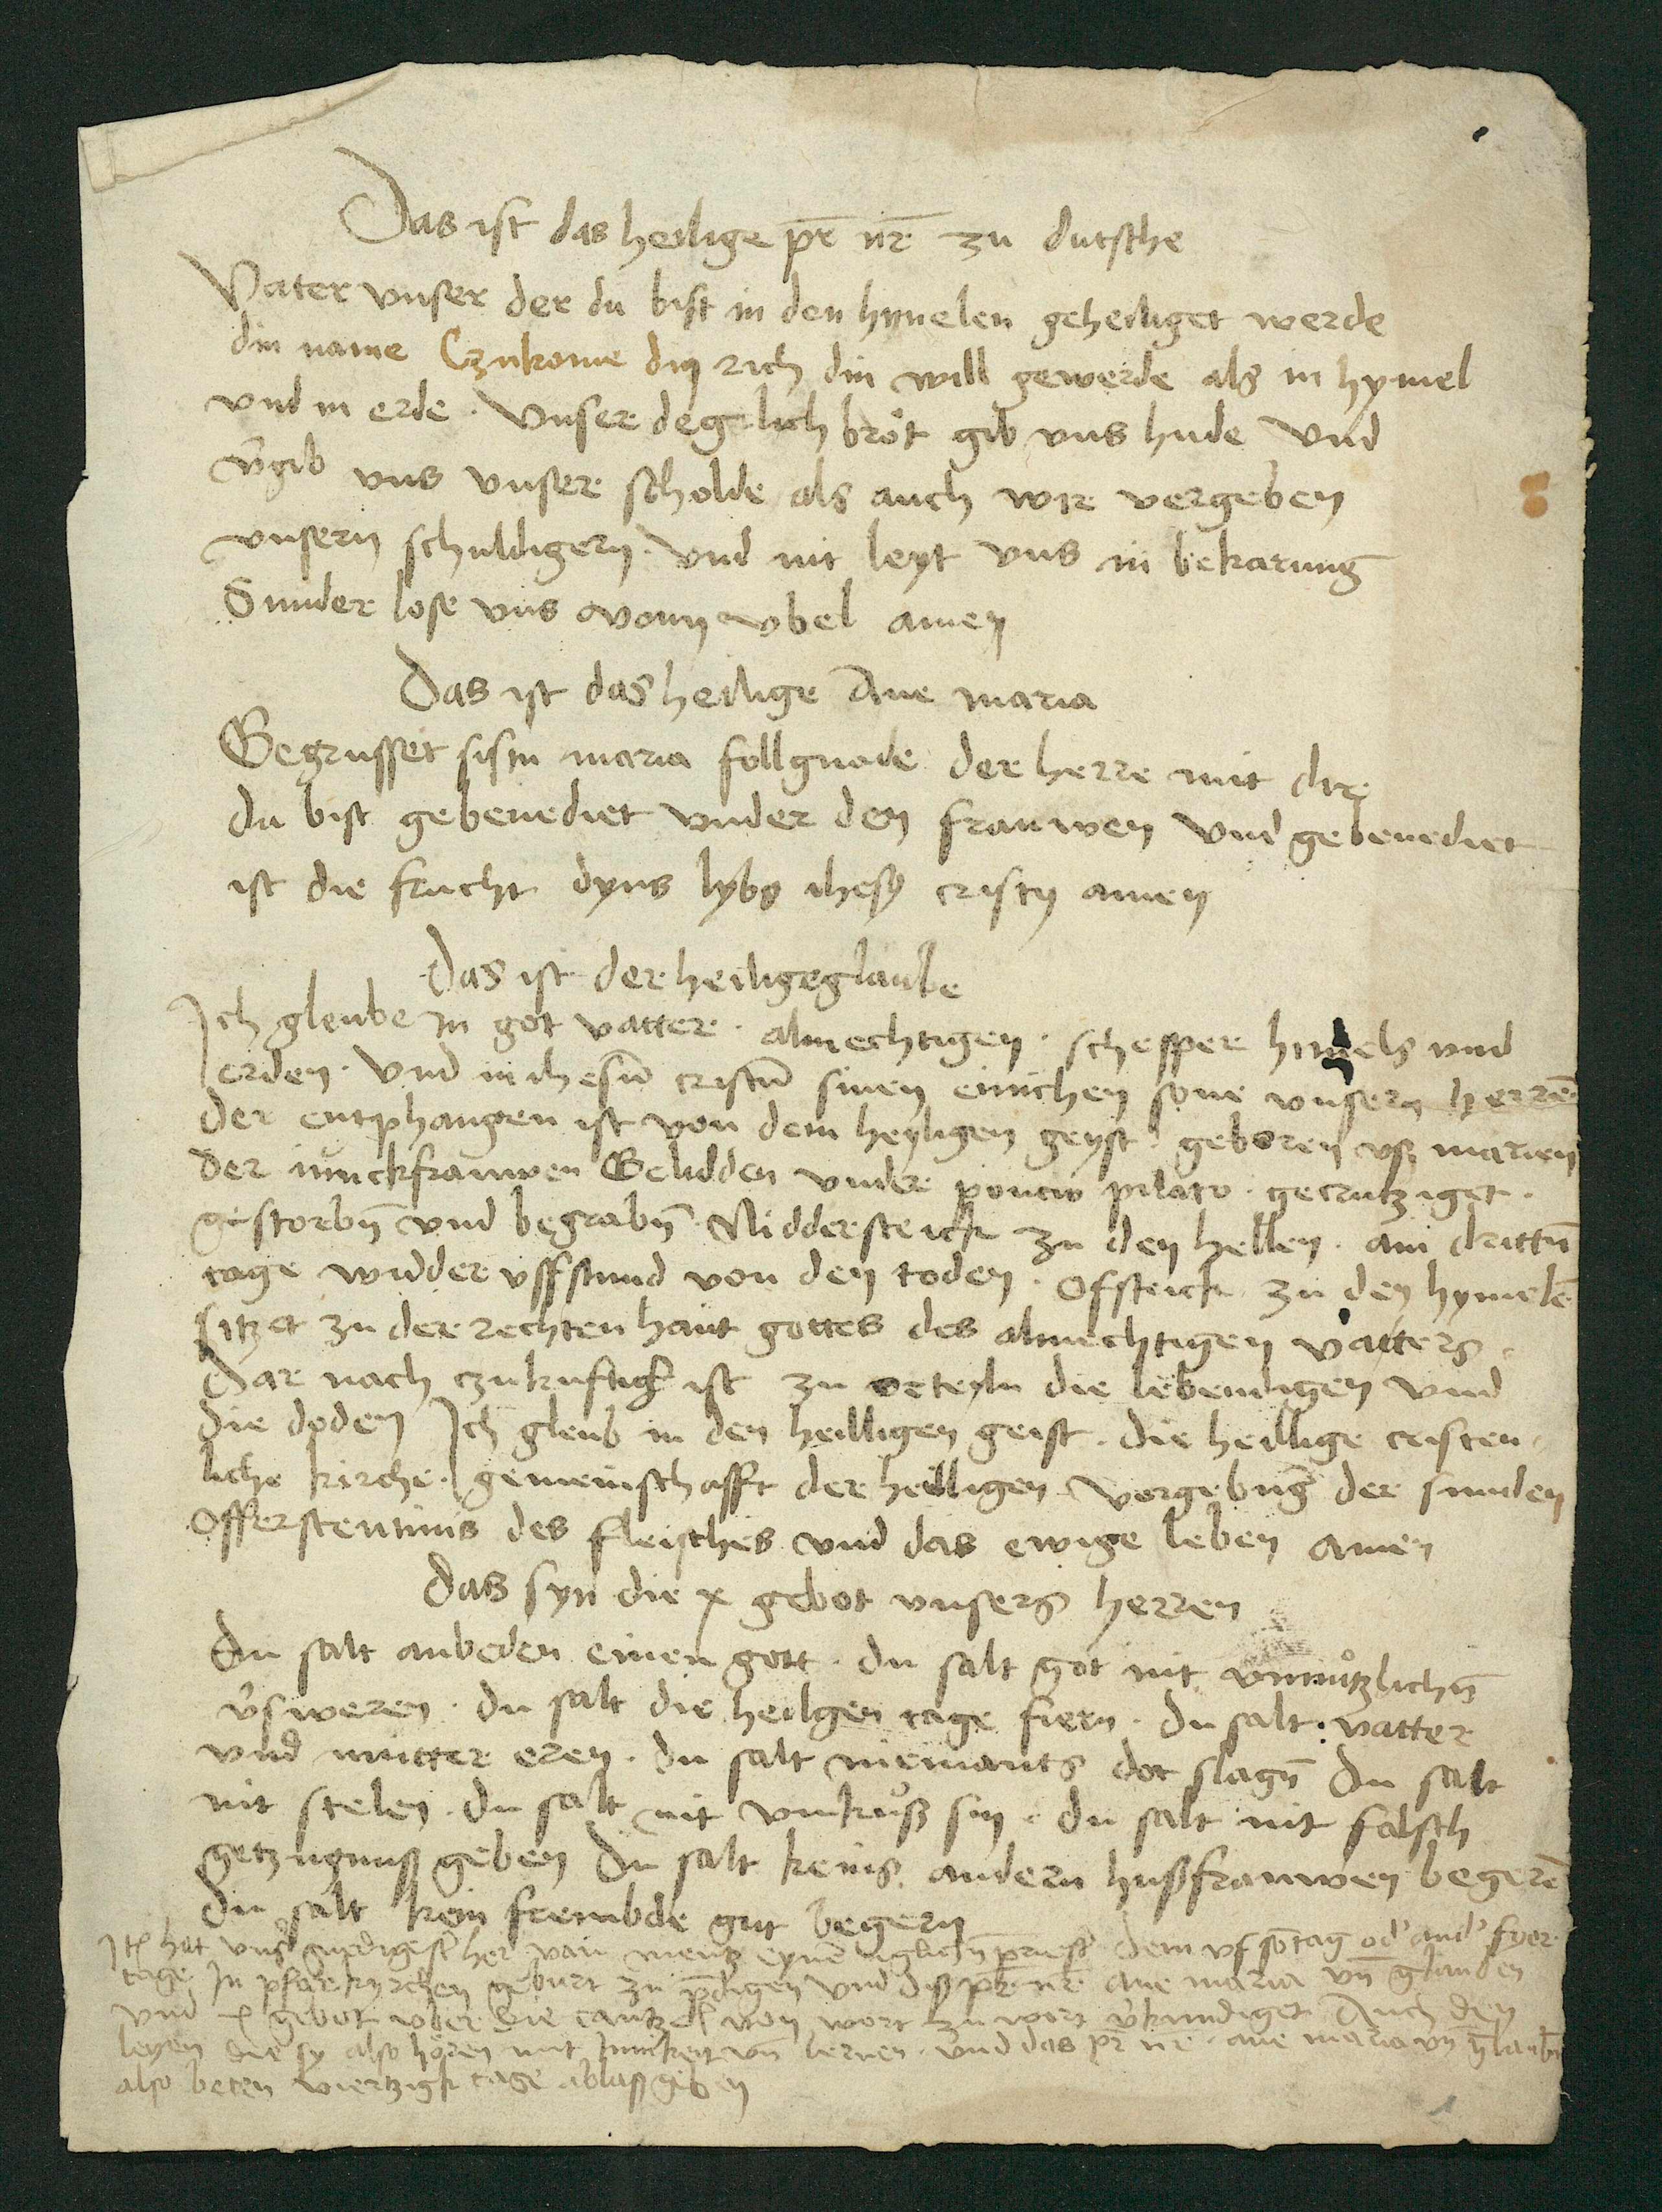 Das ist das heilige pr̄ nr̄ zu dutsche
Vater vnser der du bist in den hymelen geheiliget werde
din name Czukome din rich din will gewerde als in hymel
vnd in erde . Vnser degelich brot gib vns hude Vnd
v̄gib vns vnser scholde als auch wir vergeben
vnsern schuldigern . Vnd nit leyt vns in bekarung
Sunder lose vns vonn vbel amen
Das ist das heilige Aue maria
Gegrusset sistu maria follgnode der herre mit dir
du bist gebenediet vnder den frauwen Vnd gebenediet
ist die frucht dyns lybs ihesu cristy amen
Das ist der heiligeglaube
Ich gleube in got vatter . almechtigen . schepper himels vnd
erden . Vnd in ihesū cristū sinen einichen sone vnsern herrē
der entphangen ist von dem heyligen geyst . geboren vß marien
der iunckfrauwen Gelidden vnder poncio pilato . gecrutziget .
gestorbn̄ vnd begrabn̄ . Niddersteich zu den hellen . am drittn̄
tage widder vffstund von den toden . Ofsteick zu den hymelē
sitzet zu der rechten hant gottes des almechtigen vatters .
Dar nach czukunftigk ist zu orteyln die lebendigen vnd
die doden Ich gleub in den heilligen geist . die heillige cristen
liche kirche . gemeinschafft der heilligen . vergebung der sunden
Offerstentnus des fleisches vnd das ewige leben amen
Das syn die x gebot vnsers herren
Du salt anbeden einen gott . du salt got nit vnnutzlichn̄
v̄sweren . du salt die heilgen tage fiern . du salt . vatter
vnd mutter eren . du salt niemants dot slagn̄ Du salt
nit stelen . du salt nit vnkuß sin . du salt nit falsch
getzugnuß geben Du salt keins andern hußfrauwen begerē
Du salt kein frembde gut begern
Itē hat vnser gnedigester her van mentz eynē iglichn̄ priester dem vf sōtag od' and' fyer
tage In pfarkyrchen geburt zu p̄digen vnd diß pr̄ nr̄ aue maria vn̄ glauben
vnd x gebot vber die cantzel von wort zu wort v̄kundiget Auch den
leyen die sy also hören mit Innikeit vn̄ lernen . vnd das pr̄ nr̄ . aue maria vn̄ glaubn̄
also beten viertzigk tage ablaß geben
1